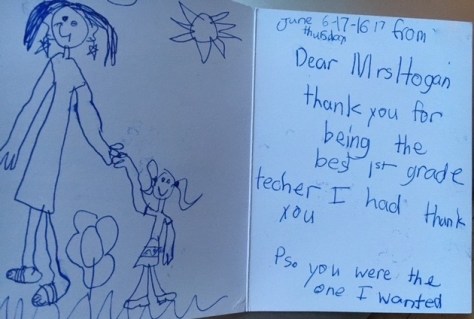 June 6-17-16 17 from
thursday
Dear Mrs Hogan
thank you for
being the
best 1st grade
techer I had thank
you
Pso you were the
one I wanted